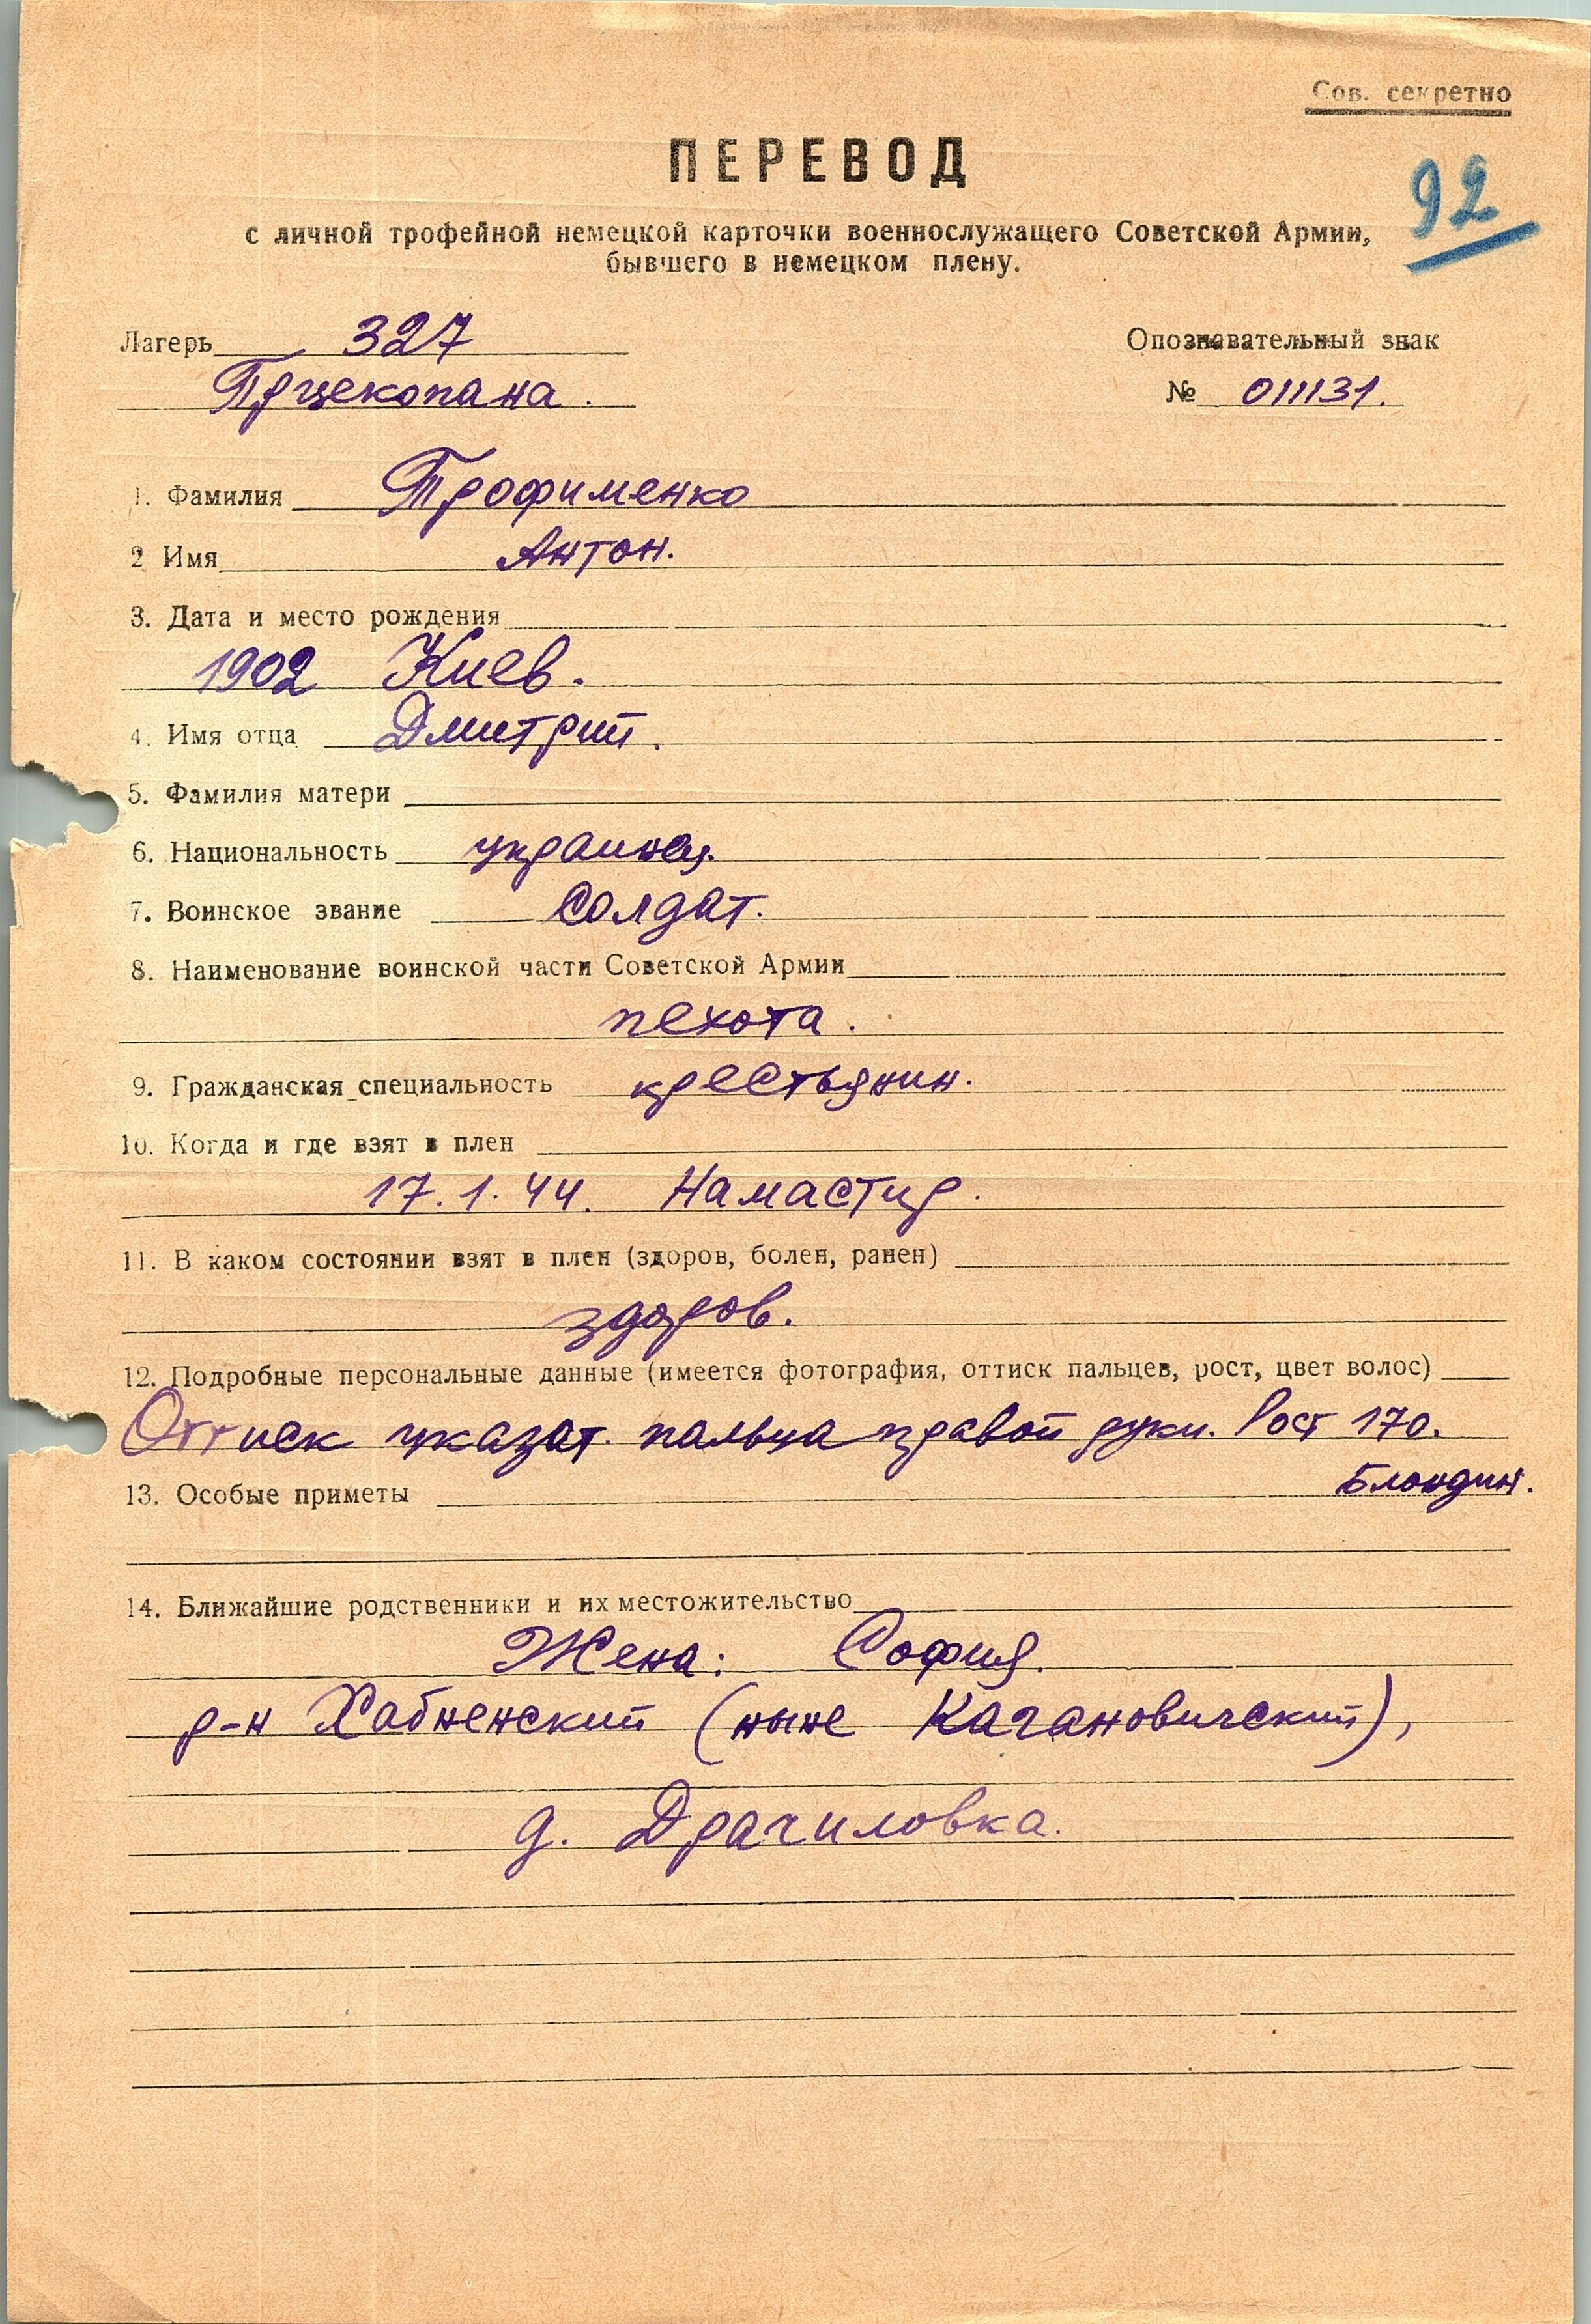 Сов. секретно
ПЕРЕВОД
92
с личной трофейной немецкой карточки военнослужащего Советской Армии,
бывшего в немецком плену.
Лагерь 327
Опознавательный знак
Прцекопана.
№ 011131.
1. Фамилия Трофименко
2 Имя Антон.
3. Дата и место рождения
1902 Киев.
4. Имя отца Дмитрий.
5. Фамилия матери
6. Национальность украинец.
7. Воинское звание Солдат.
8. Наименование воинской части Советской Армии
пехота.
9. Гражданская специальность крестьянин.
10. Когда и где взят в плен
17.1.44. Намастир.
11. В каком состоянии взят в плен (здоров, болен, ранен)
здоров.
12. Подробные персональные данные (имеется фотография, оттиск пальцев, рост, цвет волос)
Оттиск указат. пальца правой руки. Рост 170.
Блондин.
13. Особые приметы
14. Ближайшие родственники и их местожительство
Жена: София.
р-н Хабненский (ныне Кагановичский),
д. Драчиловка.